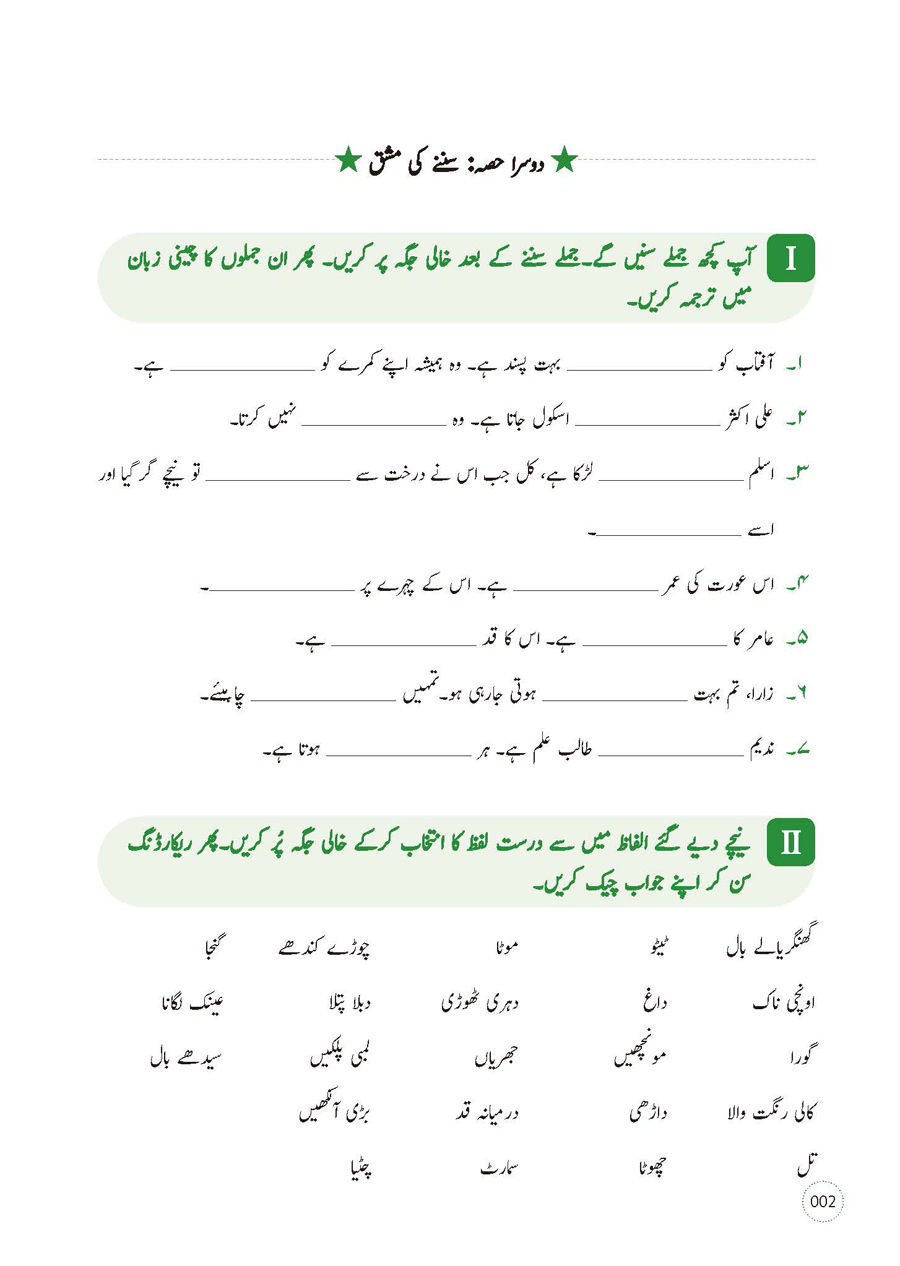 دوسرا حصہ: سننے کی مشق
I
آپ کچھ جملے سنیں گے۔جملے سننے کے بعد خالی جگہ پر کریں۔ پھر ان جملوں کا چینی زبان
میں ترجمہ کریں۔
۱۔ آفتاب کو ______________ بہت پسند ہے۔ وہ ہمیشہ اپنے کمرے کو ______________ ہے۔
۲۔ علی اکثر ______________ اسکول جاتا ہے۔ وہ ______________ نہیں کرتا۔
۳۔ اسلم ______________ لڑکا ہے، کل جب اس نے درخت سے ______________ تو نیچے گر گیا اور
اسے ______________۔
۴۔ اس عورت کی عمر ______________ ہے۔ اس کے چہرے پر ______________۔
۵۔ عامر کا ______________ ہے۔ اس کا قد ______________ ہے۔
۶۔ زارا، تم بہت ______________ ہوتی جارہی ہو۔تمہیں ______________ چاہیئے۔
۷۔ ندیم ______________ طالب علم ہے۔ ہر ______________ ہوتا ہے۔
II
نیچے دیے گئے الفاظ میں سے درست لفظ کا انتخاب کرکے خالی جگہ پُر کریں۔پھر ریکارڈنگ
سن کر اپنے جواب چیک کریں۔
گھنگریالے بال ٹیٹو موٹا چوڑے کندھے گنجا
اونچی ناک داغ دہری ٹھوڑی دبلا پتلا عینک لگانا
گورا مونچھیں جھریاں لمبی پلکیں سیدھے بال
کالی رنگت والا داڑھی درمیانہ قد بڑی آنکھیں
تل چھوٹا سمارٹ چٹیا
002